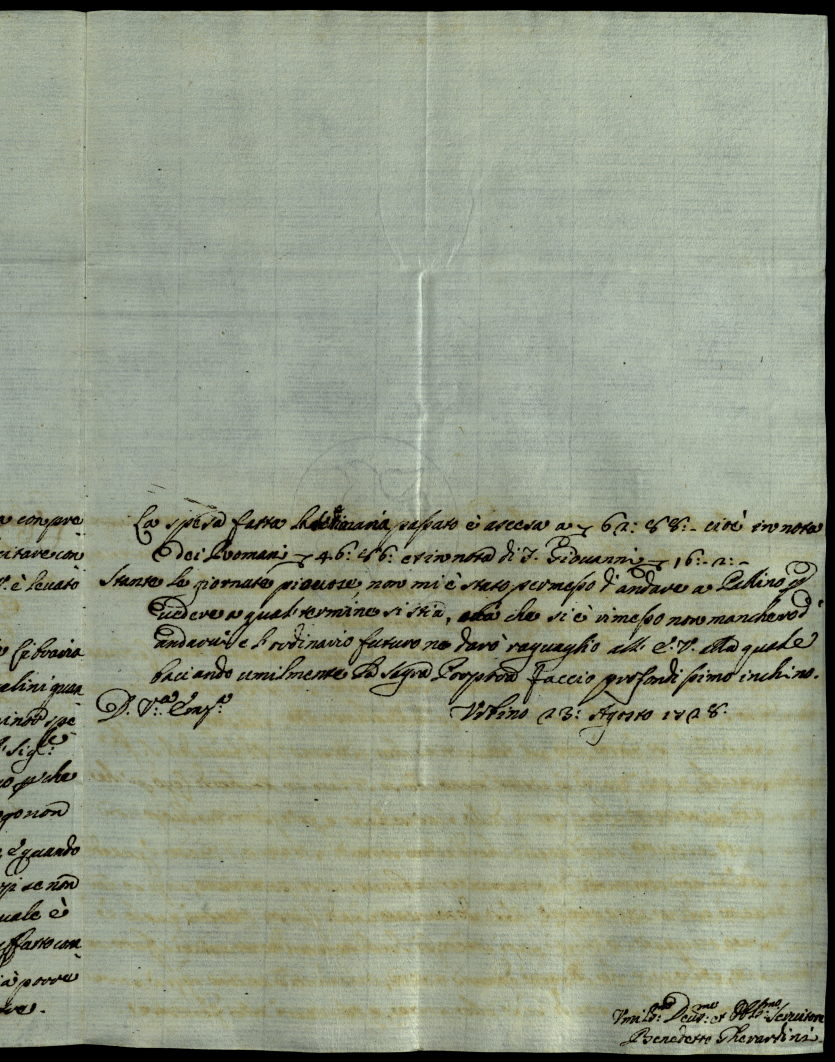 a con pre
citare con
V. è levato
Libraria
alini qua
Sig.le
o p che
go non
e quando
se non
quale è
effetto con
à potrà
La spesa fatta la settimana passato è ascesa a 62: 88:- cioè in nota
dei Romani 46: 86: et in nota di S. Giovanni 16: 2:-
Stante le giornate piovose, non mi è stato permesso d'andare a Pallino p
vedere a qual termine si stia, che si è rimesso non mancherò d'
andarvi, e l'ordinario futuro ne darò raguaglio all' E. V. alla quale
baciando umilmente la Sagra Porpora faccio profondissimo inchino.
D. V.ra Em.za
Urbino 23: Agosto 1728.
Umil.mo Dev.mo et Obb.mo Servitore
Benedetto Gherardini